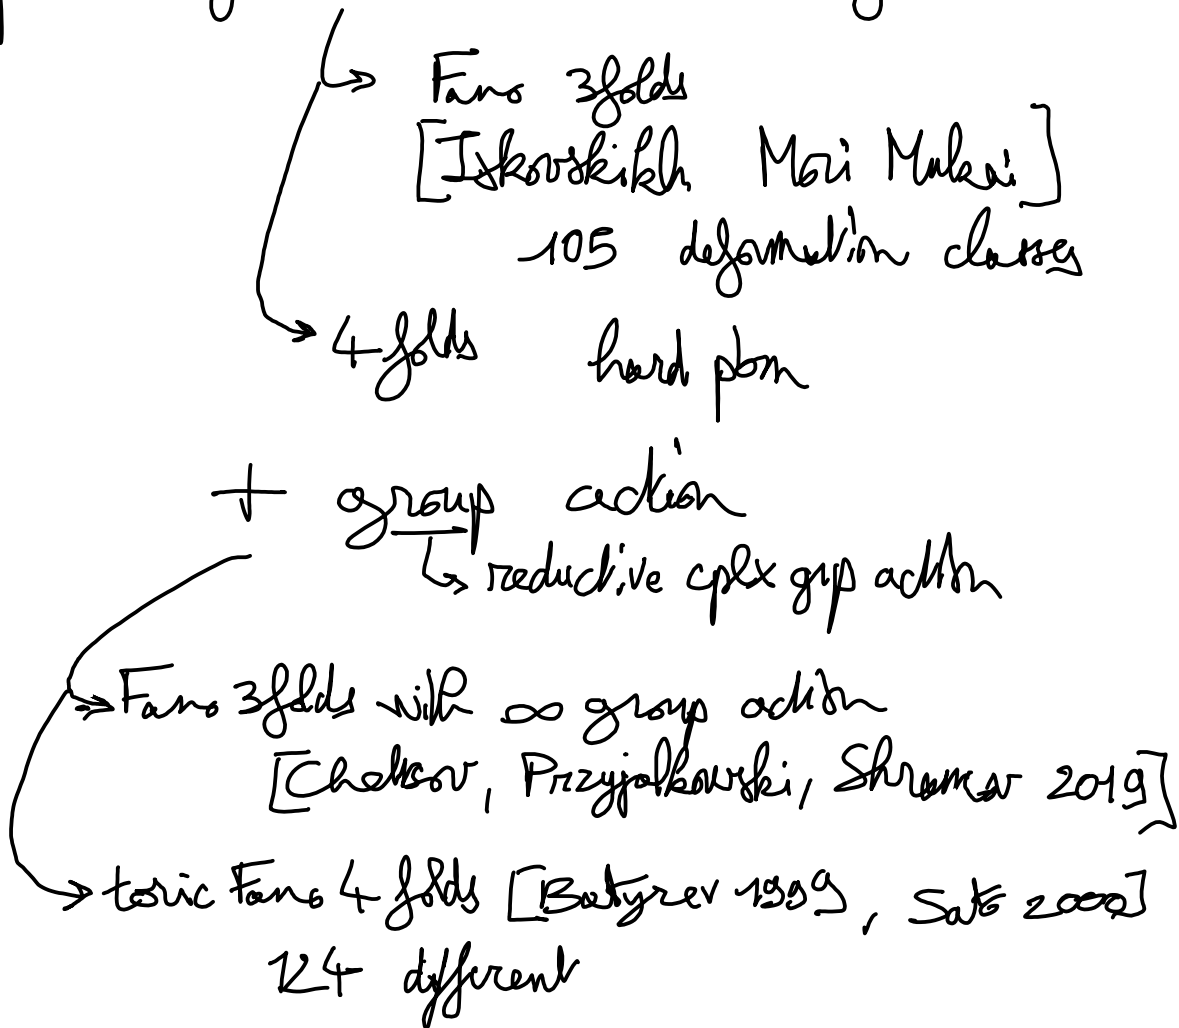 Fano 3folds
[Iskovskikh Mori Mukai]
105 deformation classes
4folds hard pbm
+ group action
reductive cplx grp action
Fano 3folds with ∞ group action
[Cheltsov, Przyjalkowski, Shramov 2019]
toric Fano 4folds [Batyrev 1999, Sato 2000]
124 different